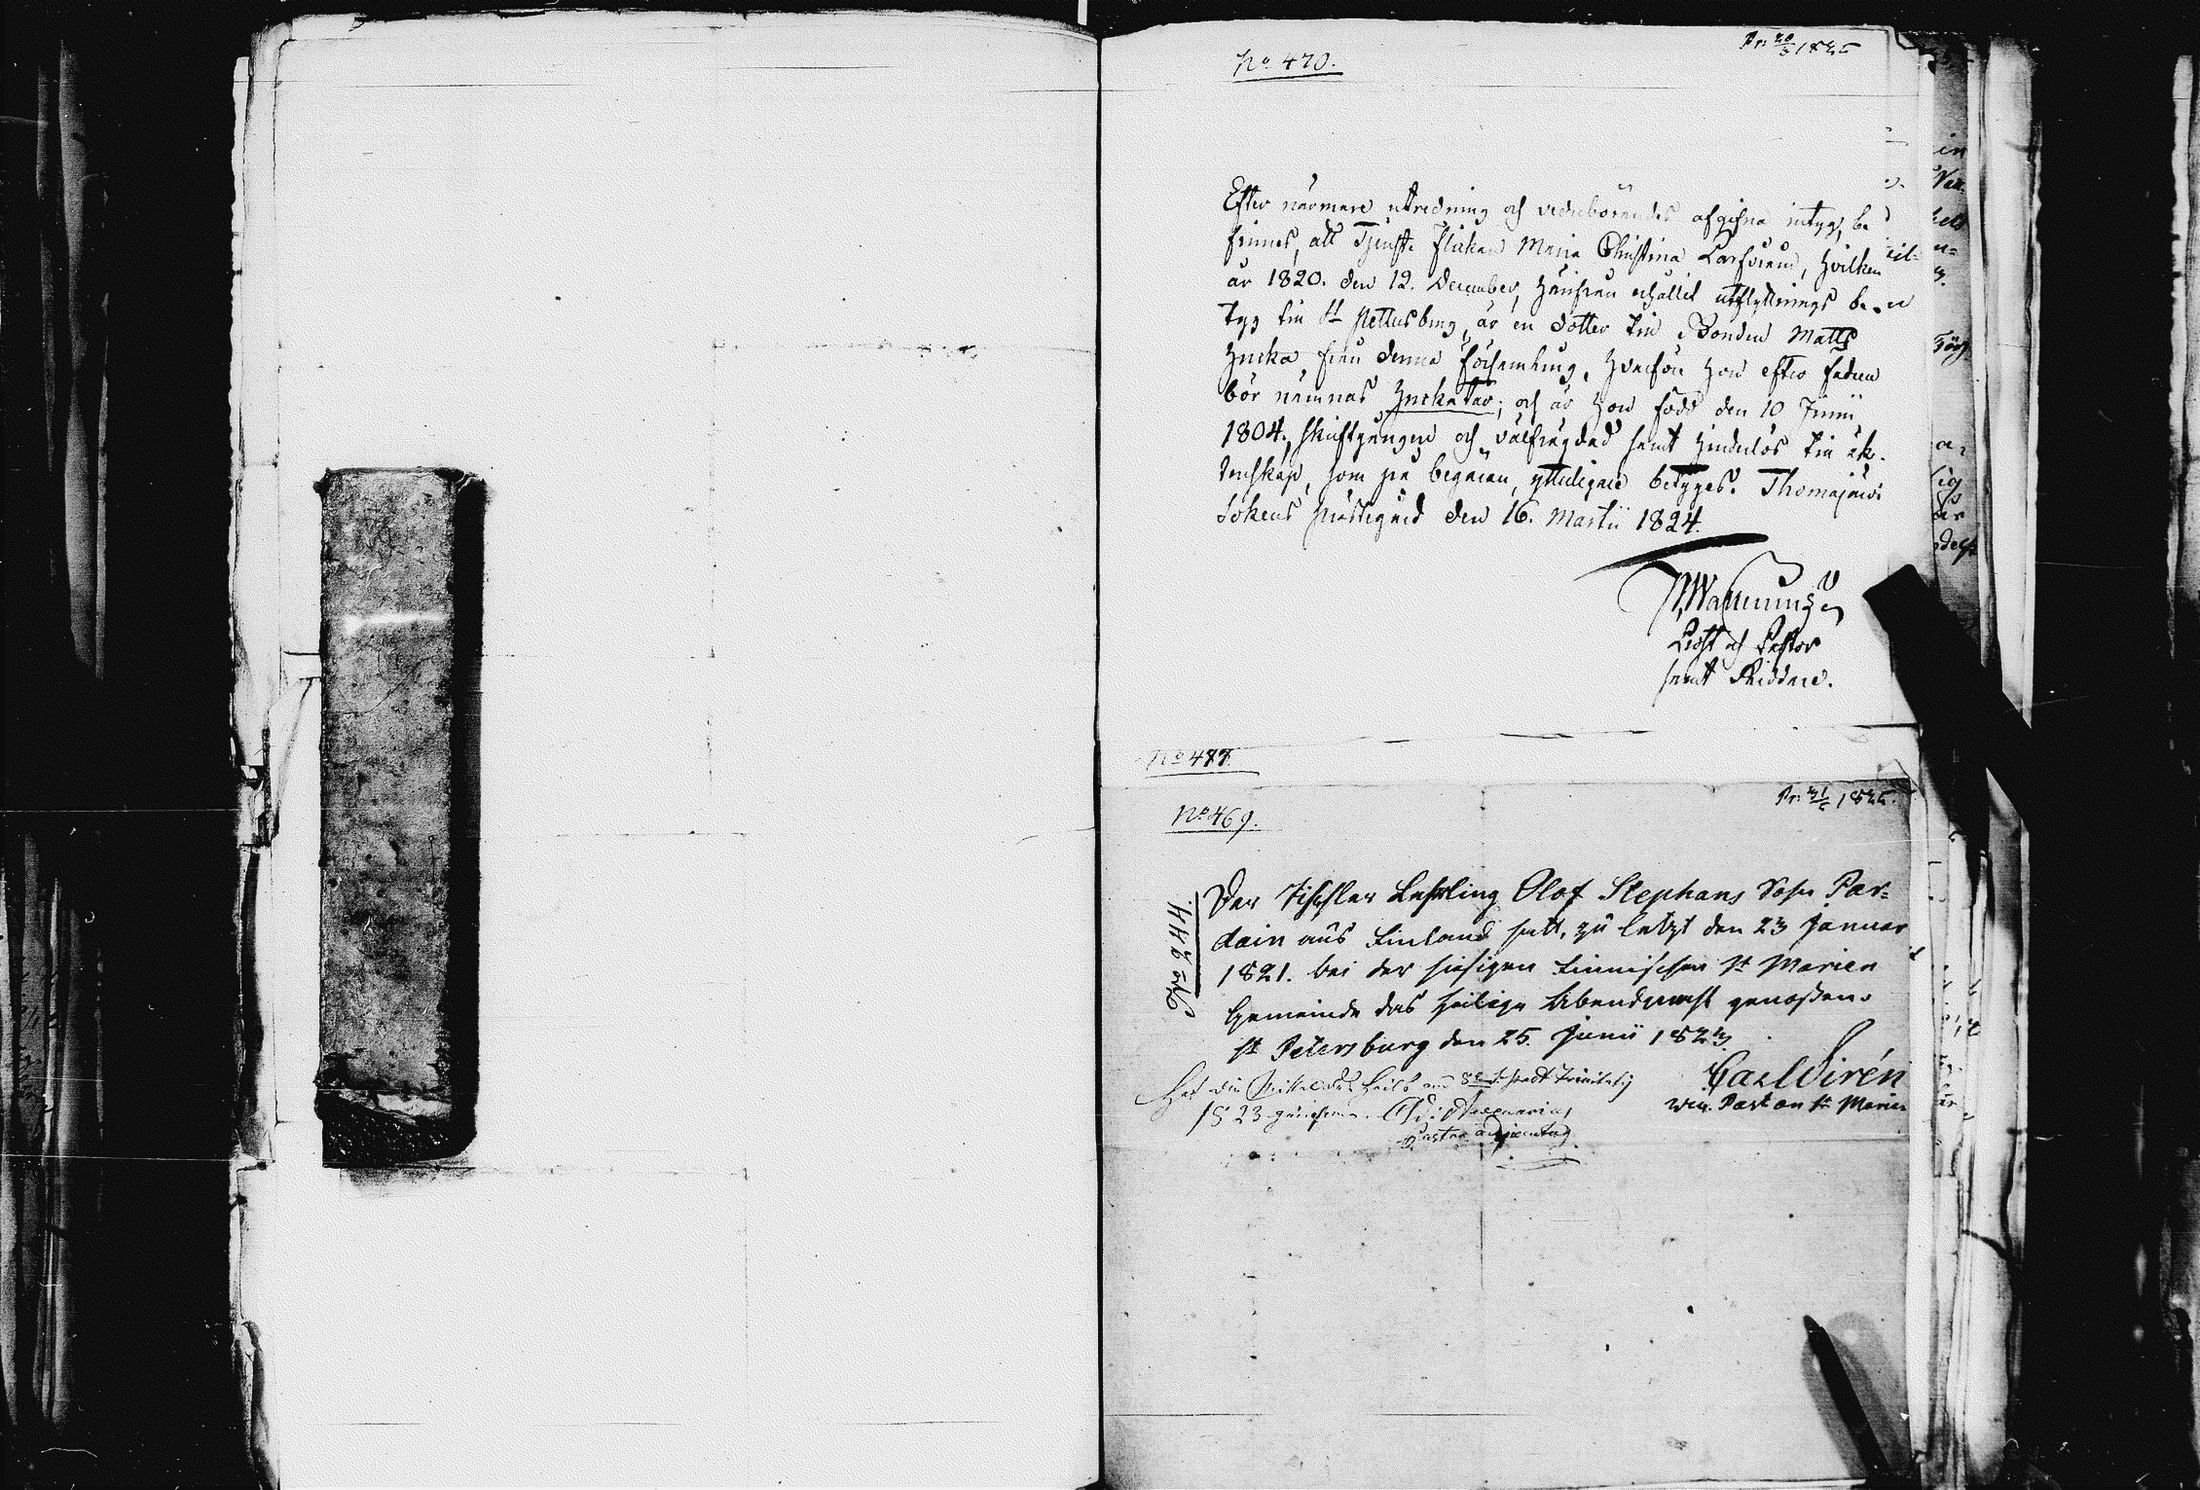 No 470.
Pr: 20/5 1825
Efter närmare utredning och vederbörandes afgifna intyg, be
finnes, att Tjenste flickan Maria Christina Larsdram, hvilken
år 1820. den 12. December, härifrån erhållit utflyttnings be-
tyg till St Pettersburg, är en dotter till Bonden Matts
Hucka från denna församling, hvarföre hon efter fadren
bör nämnas Huckatar; och är hon född den 10 Junii
1804, skriftgången och välfrägdad samt hinderlös till äk-
tenskap, som på begäran, ytterligare betyges. Thomajärvi
Sokens prästegård den 16. Martii 1824.
Prost och Pastor
samt Riddare.
No 477.
No 469.
Pr: 21/5 1825.
No 244.
Der Tischler Lehrling Olof Stephans Sohn Par=
dain aus Finland hatt, zu letzt den 23 Januar
1821. bei der hiesigen Finnischen St Marien
Gemeinde das heilige Abendmahl genossen.
St Petersburg den 25. Junii 1823.
Carl Sirén
Past an St Marien
Hat die Mittel des Heils am 8t Trinitatis
1823 genossen.
Pastor adjunctus